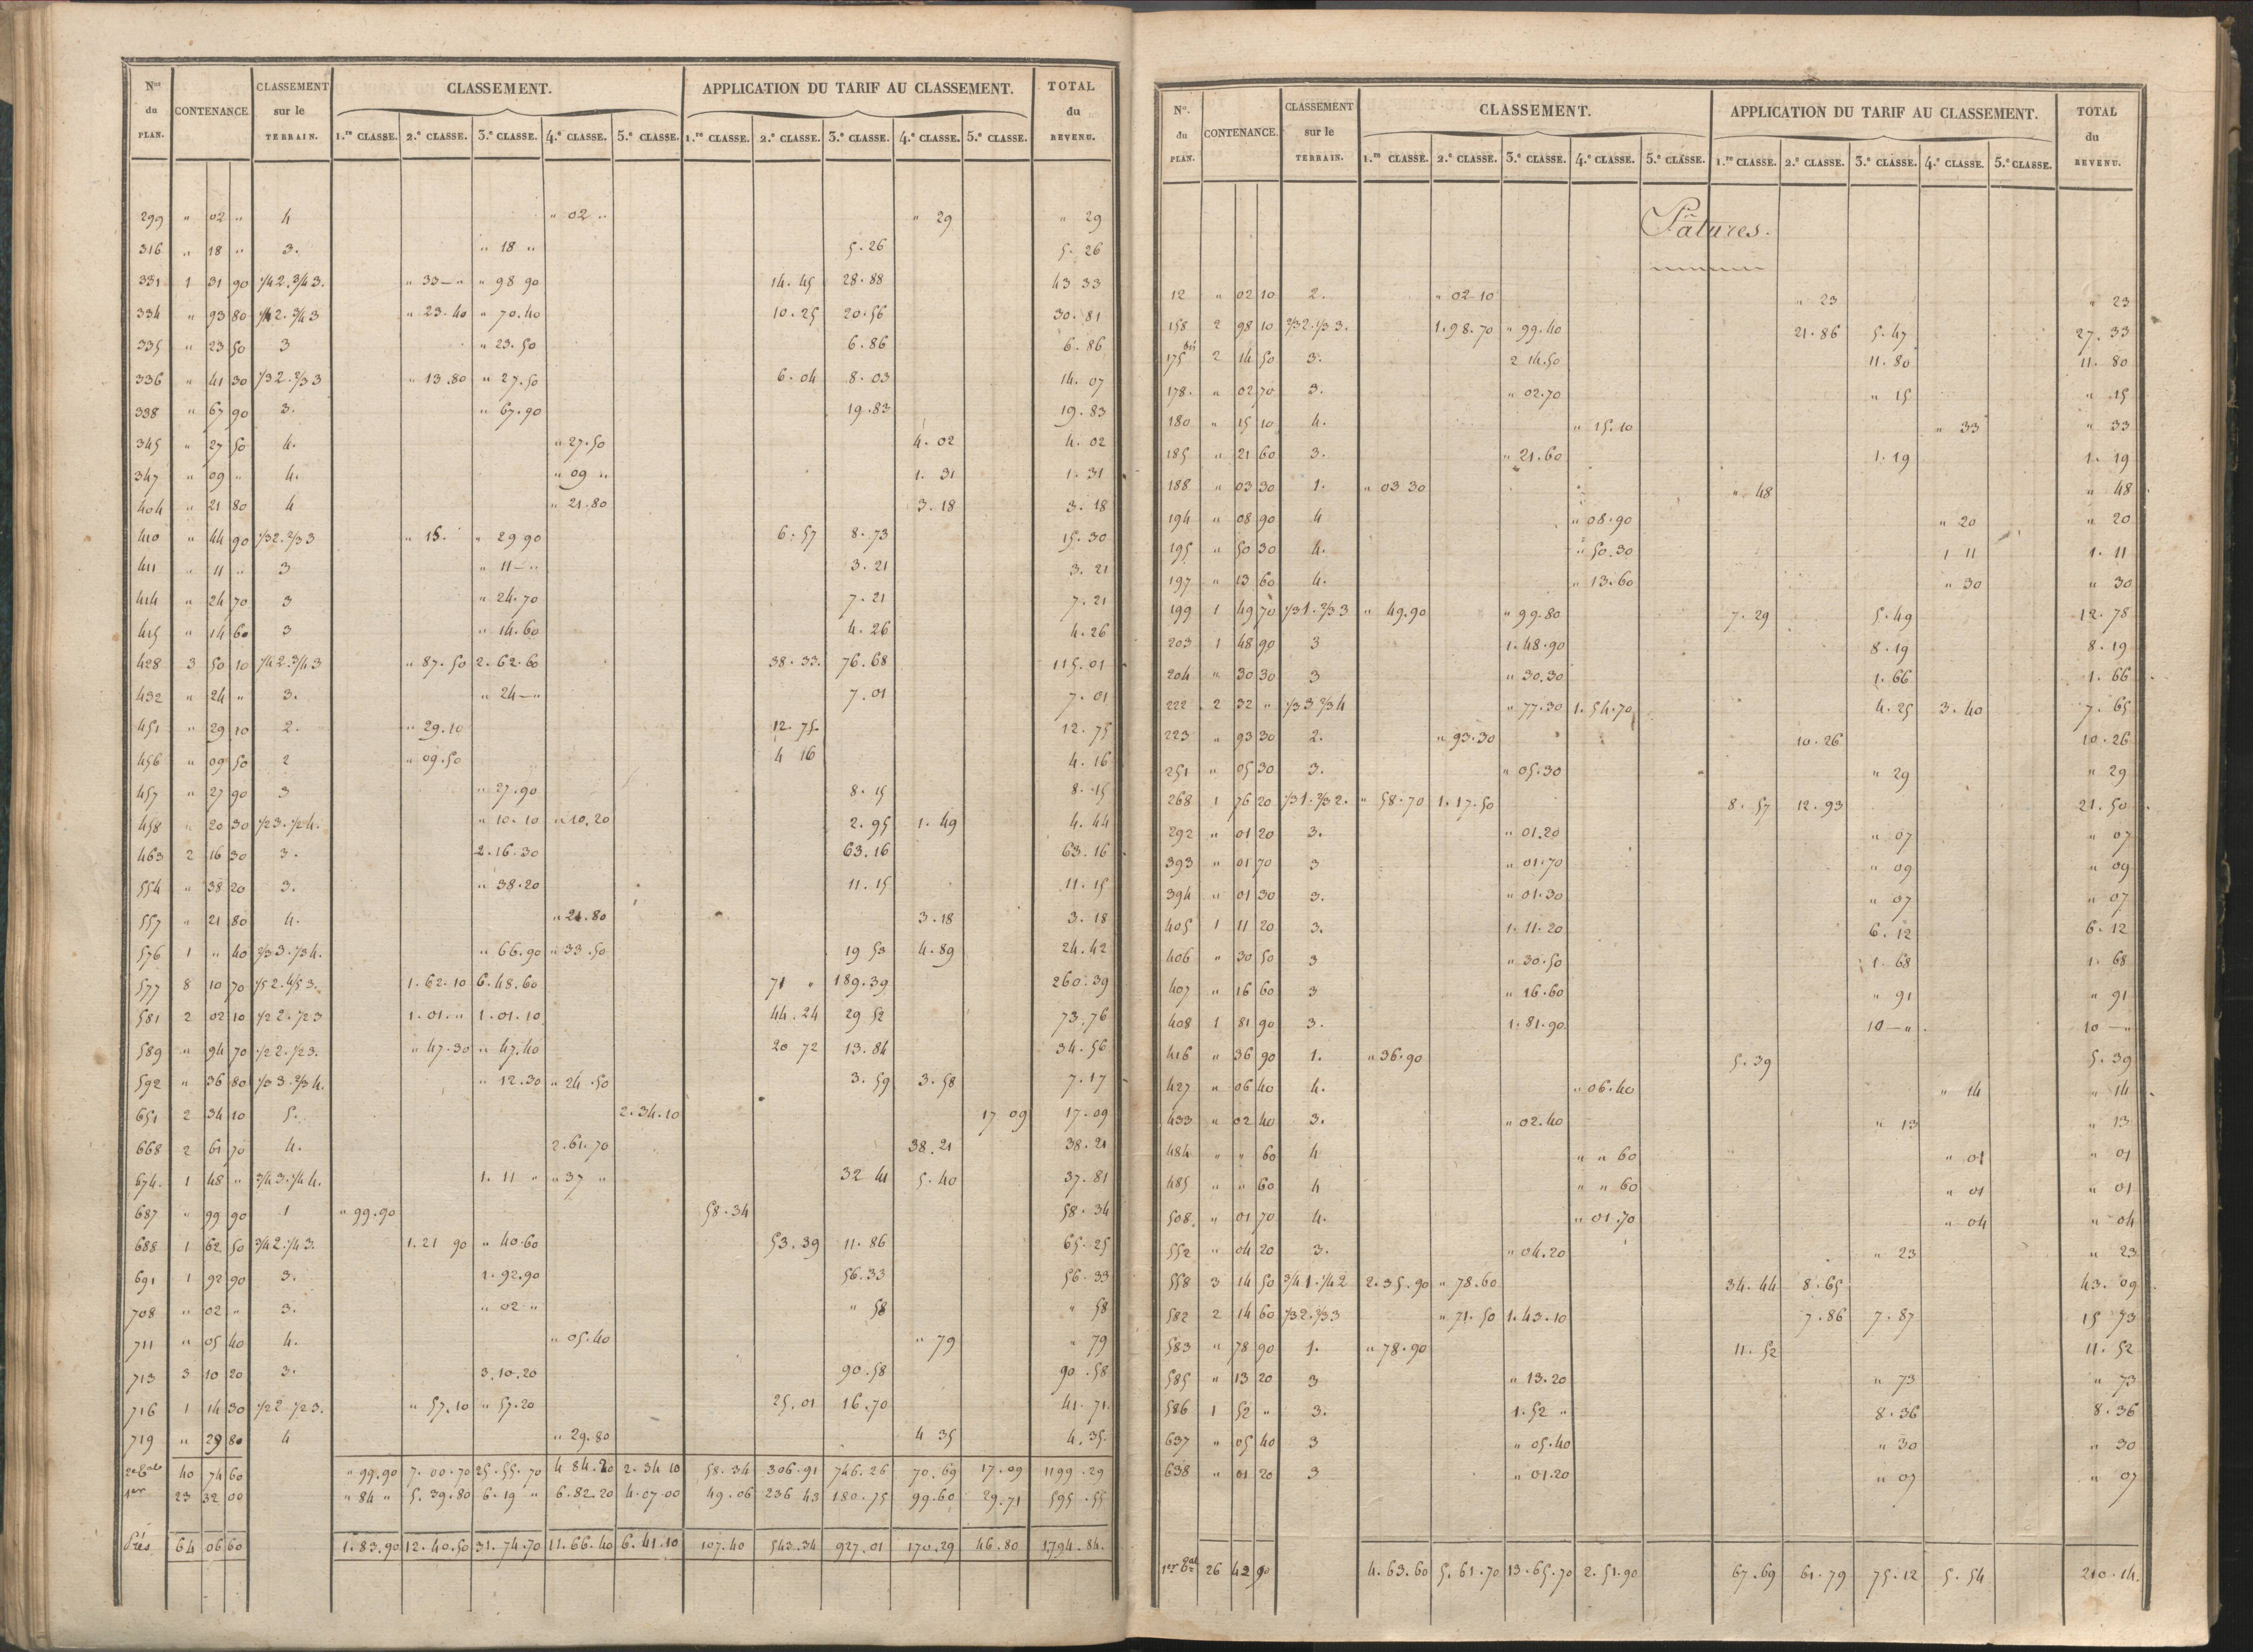 Nos du PLAN. CONTENANCE CLASSEMENT sur le TERRAIN. CLASSEMENT. APPLICATION DU TARIF AU CLASSEMENT. TOTAL du REVENU.
1.re CLASSE. 2.e CLASSE. 3.e CLASSE. 4.e CLASSE. 5.e CLASSE. 1.re CLASSE. 2.e CLASSE. 3.e CLASSE. 4.e CLASSE. 5.e CLASSE.
299 " 02 " 4 " 02 " " 29 " 29
316 " 18 " 3. " 18 " 5.26 5.26
331 1 31 90 1/4 2. 3/4 3. " 33 — " " 98 90 14.45 28.88 43 33
334 " 93 80 1/4 2. 3/4 3 " 23.40 " 70.40 10.25 20.56 30.81
335 " 23 50 3 " 23.50 6.86 6.86
336 " 41 30 1/3 2. 2/3 3 " 13.80 " 27.50 6.04 8.03 14.07
338 " 67 90 3. " 67.90 19.83 19.83
345 " 27 50 4. " 27.50 4.02 4.02
347 " 09 " 4. " 09 " 1.31 1.31
404 " 21 80 4 " 21.80 3.18 3.18
410 " 44 90 1/3 2. 2/3 3 " 15. " 29 90 6.57 8.73 15.30
411 " 11 " 3 " 11 — " 3.21 3.21
414 " 24 70 3 " 24.70 7.21 7.21
415 " 14 60 3 " 14.60 4.26 4.26
428 3 50 10 1/4 2. 3/4 3 " 87.50 2.62.60 38.33. 76.68 115.01
432 " 24 " 3. " 24 — " 7.01 7.01
451 " 29 10 2. " 29.10 12.75. 12.75
456 " 09 50 2 " 09.50 4 16 4.16
457 " 27 90 3 " 27.90 8.15 8.15
458 " 20 30 1/2 3. 1/2 4. " 10.10 " 10.20 2.95 1.49 4.44
463 2 16 30 3. 2.16.30 63.16 63.16
554 " 38 20 3. " 38.20 11.15 11.15
557 " 21 80 4. " 21.80 3.18 3.18
576 1 " 40 2/3 3. 1/3 4. " 66.90 " 33.50 19 53 4.89 24.42
577 8 10 70 1/5 2. 4/5 3. 1.62.10 6.48.60 71 " 189.39 260.39
581 2 02 10 1/2 2. 1/2 3 1.01. " 1.01.10 44.24 29 52 73.76
589 " 94 70 1/2 2. 1/2 3. " 47.30 " 47.40 20 72 13.84 34.56
592 " 36 80 1/3 3. 2/3 4. " 12.30 " 24.50 3.59 3.58 7.17
651 2 34 10 5. 2.34.10 17 09 17.09
668 2 61 70 4. 2.61.70 38.21 38.21
674. 1 48 " 3/4 3. 1/4 4. 1.11 " " 37 " 32 41 5.40 37.81
687 " 99 90 1 " 99.90 58.34 58.34
688 1 62 50 3/4 2. 1/4 3. 1.21 90 " 40.60 53.39 11.86 65.25
691 1 92 90 3. 1.92.90 56.33 56.33
708 " 02 " 3. " 02 " " 58 " 58
711 " 05 40 4. " 05.40 " 79 " 79
713 3 10 20 3. 3.10.20 90.58 90.58
716 1 14 30 1/2 2 1/2 3. " 57.10 " 57.20 25.01 16.70 41.71.
719 " 29 80 4 " 29.80 4 35 4.35.
40 74 60 " 99.90 7.00.70 25.55.70 4 84.20 2.34 10 58.34 306.91 746.26 70.69 17.09 1199.29
1er 23 32 00 " 84 " 5.39.80 6.19 " 6.82.20 4.07.00 49.06 236 43 180.75 99.60 29.71 595.55
Prés 64 06 60 1.83.90 12.40.50 31.74.70 11.66.40 6.41.10 107.40 543.34 927.01 170.29 46.80 1794.84.
No. du PLAN. CONTENANCE. CLASSEMENT sur le TERRAIN. CLASSEMENT. APPLICATION DU TARIF AU CLASSEMENT. TOTAL du REVENU.
1.re CLASSE. 2.e CLASSE. 3.e CLASSE. 4.e CLASSE. 5.e CLASSE. 1.re CLASSE. 2.e CLASSE. 3.e CLASSE. 4.e CLASSE. 5.e CLASSE.
Pâtures.
12 " 02 10 2. " 02 10 " 23 " 23
158 2 98 10 2/3 2. 1/3 3. 1.98.70 " 99.40 21.86 5.47 27.33
175 bis 2 14 50 3. 2 14.50 11.80 11.80
178. " 02 70 3. " 02.70 " 15 " 15
180 " 15 10 4. " 15.10 " 33 " 33
185 " 21 60 3. " 21.60 1.19 1.19
188 " 03 30 1. " 03 30 " 48 " 48
194 " 08 90 4 " 08.90 " 20 " 20
195 " 50 30 4. " 50.30 1 11 1.11
197 " 13 60 4. " 13.60 " 30 " 30
199 1 49 70 1/3 1. 2/3 3 " 49.90 " 99.80 7.29 5.49 12.78
203 1 48 90 3 1.48.90 8.19 8.19
204 " 30 30 3 " 30.30 1.66 1.66
222 2 32 " 1/3 3 2/3 4 " 77.30 1.54.70 4.25 3.40 7.65
223 " 93 30 2. " 93.30 10.26 10.26
251 " 05 30 3. " 05.30 " 29 " 29
268 1 76 20 1/3 1. 2/3 2. " 58.70 1.17.50 8.57 12.93 21.50
292 " 01 20 3. " 01.20 " 07 " 07
393 " 01 70 3 " 01.70 " 09 " 09
394 " 01 30 3. " 01.30 " 07 " 07
405 1 11 20 3. 1.11.20 6.12 6.12
406 " 30 50 3 " 30.50 1.68 1.68
407 " 16 60 3 " 16.60 " 91 " 91
408 1 81 90 3. 1.81.90. 10 — " 10 — "
416 " 36 90 1. " 36.90 5.39 5.39
427 " 06 40 4. " 06.40 " 14 " 14
433 " 02 40 3. " 02.40 " 13 " 13
484 " " 60 4 " " 60 " 01 " 01
485 " " 60 4 " " 60 " 01 " 01
508. " 01 70 4. " 01.70 " 04 " 04
552 " 04 20 3. " 04.20 " 23 " 23
558 3 14 50 3/4 1. 1/4 2 2.35.90 " 78.60 34.44 8.65 43.09
582 2 14 60 1/3 2. 2/3 3 " 71.50 1.43.10 7.86 7.87 15 73
583 " 78 90 1. " 78.90 11.52 11.52
585 " 13 20 3 " 13.20 " 73 " 73
586 1 52 " 3. 1.52 " 8.36 8.36
637 " 05 40 3 " 05.40 " 30 " 30
638 " 01 20 3 " 01.20 " 07 " 07
1er 26 42 90 4.63.60 5.61.70 13.65.70 2.51.90 67.69 61.79 75.12 5.54 210.14.